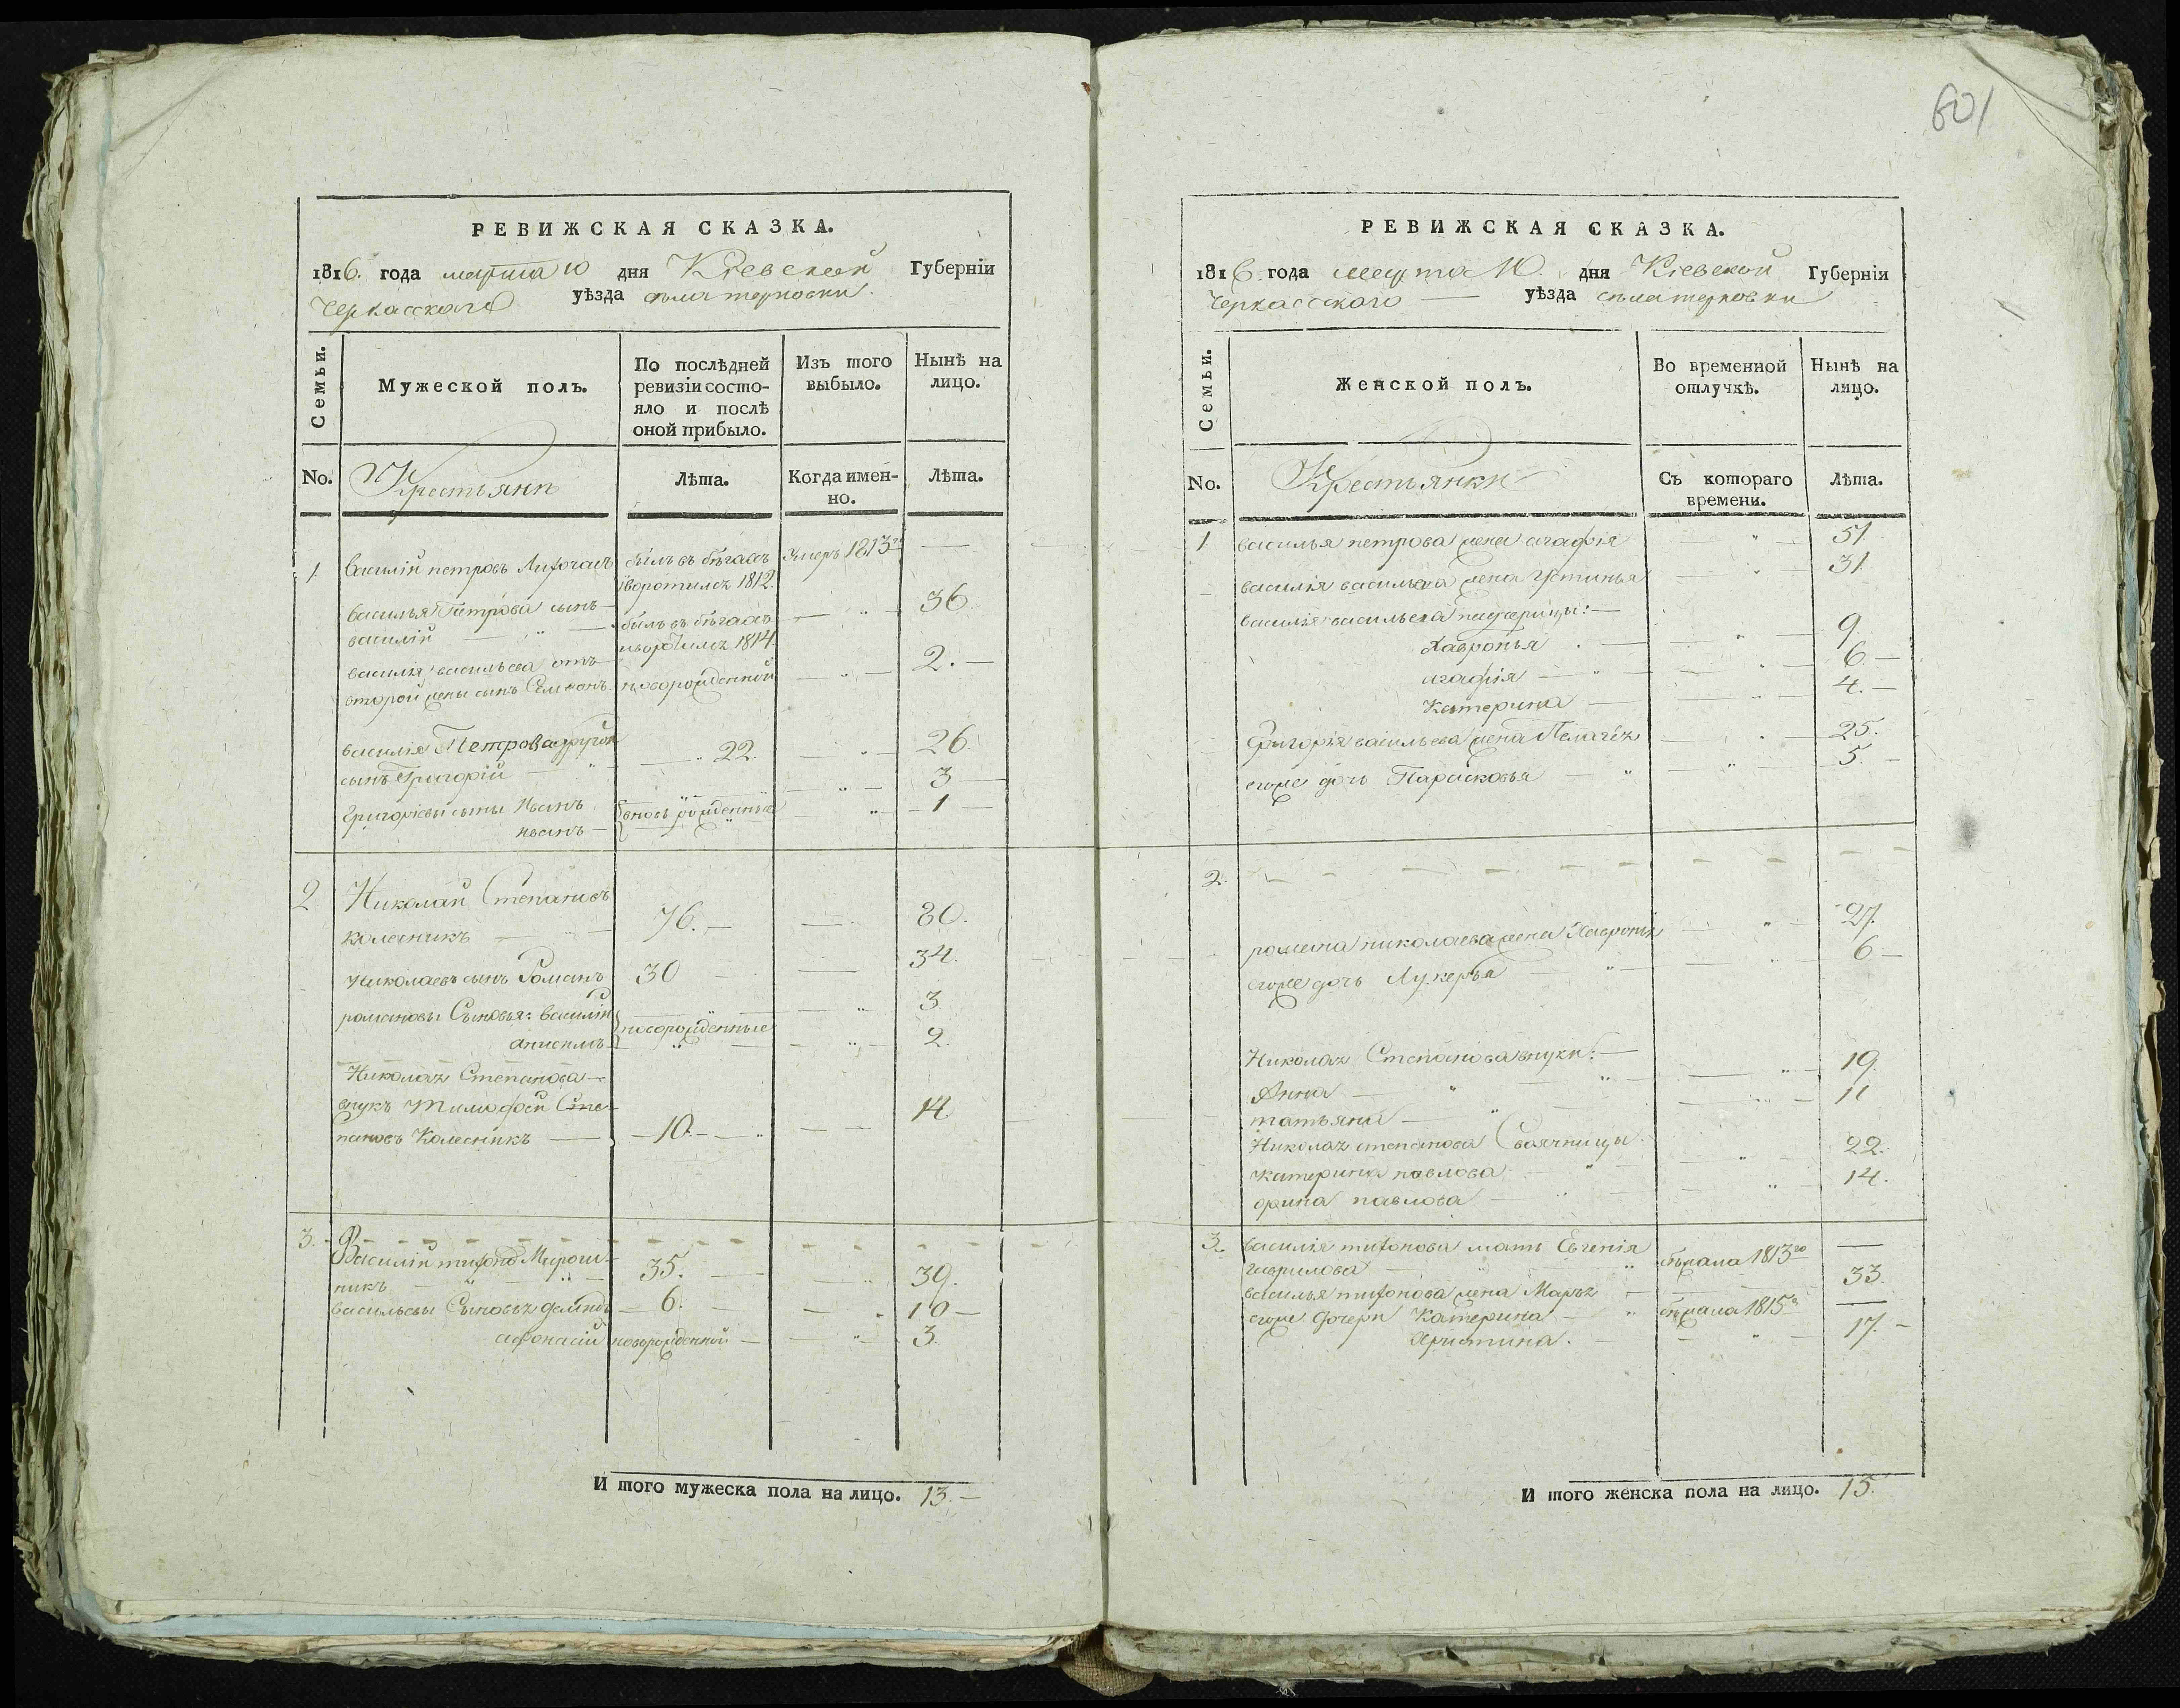 601
РЕВИЖСКАЯ СКАЗКА.
1816. года марта 10 дня Кіевской Губерніи
Черкасского уѣзда села терновки.
Семьи.
Мужеской полъ.
По послѣдней ревизіи состо-
яло и послѣ
оной прибыло.
Изъ того выбыло.
Нынѣ на лицо.
No.
Крестьяни
Лѣта.
Когда имен-
но.
Лѣта.
1. Василій петровъ былъ въ бѣгахъ Умеръ 1813 —
воротился 1812.
василья Петрова сынъ —
василій — былъ въ бѣгахъ — 36.
иворотился 1814.
василія васильева отъ
второй жены сынъ Семионъ новорожденной — 2. —
василія Петрова другой
сынъ Григорій — 22. — 26.
григорьевы сыны Иванъ вновь рожденныя — 3 —
иванъ — 1 —
2. Николай Степановъ
колесникъ — 76. — 80.
Николаевъ сынъ Романъ 30 — 34.
романовы Сыновья: василій новорожденные — 3.
анисимъ — 2.
Николая Степанова —
внукъ Тимофей Сте-
пановъ Колесникъ — 10. — 14
3. Василій Мирош-
никъ — 35. — 39.
васильевы Сыновья демидъ — 6. — 10 —
афонасій новорожденной — 3.
И того мужеска пола на лицо. 13. —
РЕВИЖСКАЯ СКАЗКА.
1816. года марта 10. дня Кіевской Губерніи
Черкасского — уѣзда села терновки
Семьи.
Женской полъ.
Во временной отлучкѣ.
Нынѣ на лицо.
No.
Крестьянки
Съ котораго времени.
Лѣта.
1. василья петрова жена агафія — 51.
василія васильева жена Устинья — 31.
василія васильева падчерицы: —
Хавронья — 9.
агафія — 6. —
Катерина — 4. —
Григорія васильева жена Пелагея — 25.
егоже дочь Парасковья — 5. —
2.
романа николаева жена Хавронія — 27.
егоже дочь Лукерья — 6 —
Николая Степанова внуки: —
Анна — 19.
татьяна — 11
Николая степанова Своячницы
катерина павлова — 22.
орина павлова — 14.
3. василія мать Евгенія
гаврилова — бѣжала 1813го —
василья жена Марья — 33.
егоже дочери Катерина — бѣжала 1815 —
Христина. — 17. —
И того женска пола на лицо. 15.